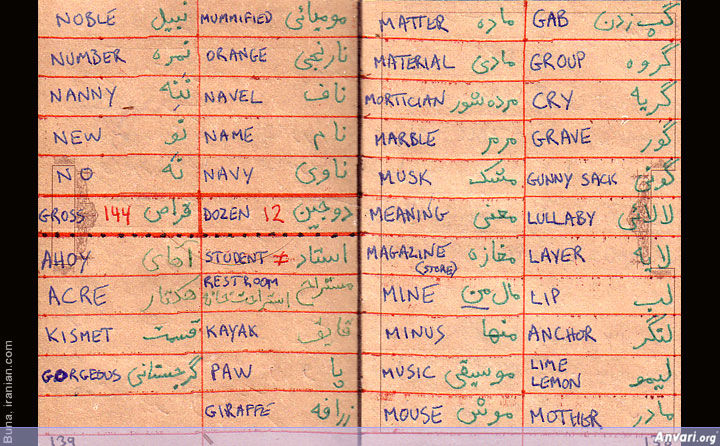 NOBLE نبیل
NUMBER نمره
NANNY ننه
NEW نو
NO نه
GROSS 144 قراص
AHOY آهای
ACRE هکتار
KISMET قسمت
GORGEOUS گرجستانی
MUMMIFIED مومیائی
ORANGE نارنجی
NAVEL ناف
NAME نام
NAVY ناوی
DOZEN 12 دوجین
STUDENT ≠ استاد
RESTROOM مستراح
استراحتخانه
KAYAK قایق
PAW پا
GIRAFFE زرافه
139
MATTER ماده
MATERIAL مادی
MORTICIAN مرده شور
MARBLE مرمر
MUSK مشک
MEANING معنی
MAGAZINE مغازه
(STORE)
MINE مال من
MINUS منها
MUSIC موسیقی
MOUSE موش
GAB گپ زدن
GROUP گروه
CRY گریه
GRAVE گور
GUNNY SACK گونی
LULLABY لالائی
LAYER لایه
LIP لب
ANCHOR لنگر
LIME لیمو
LEMON
MOTHER مادر
Buna, iranian.com
Anvari.org